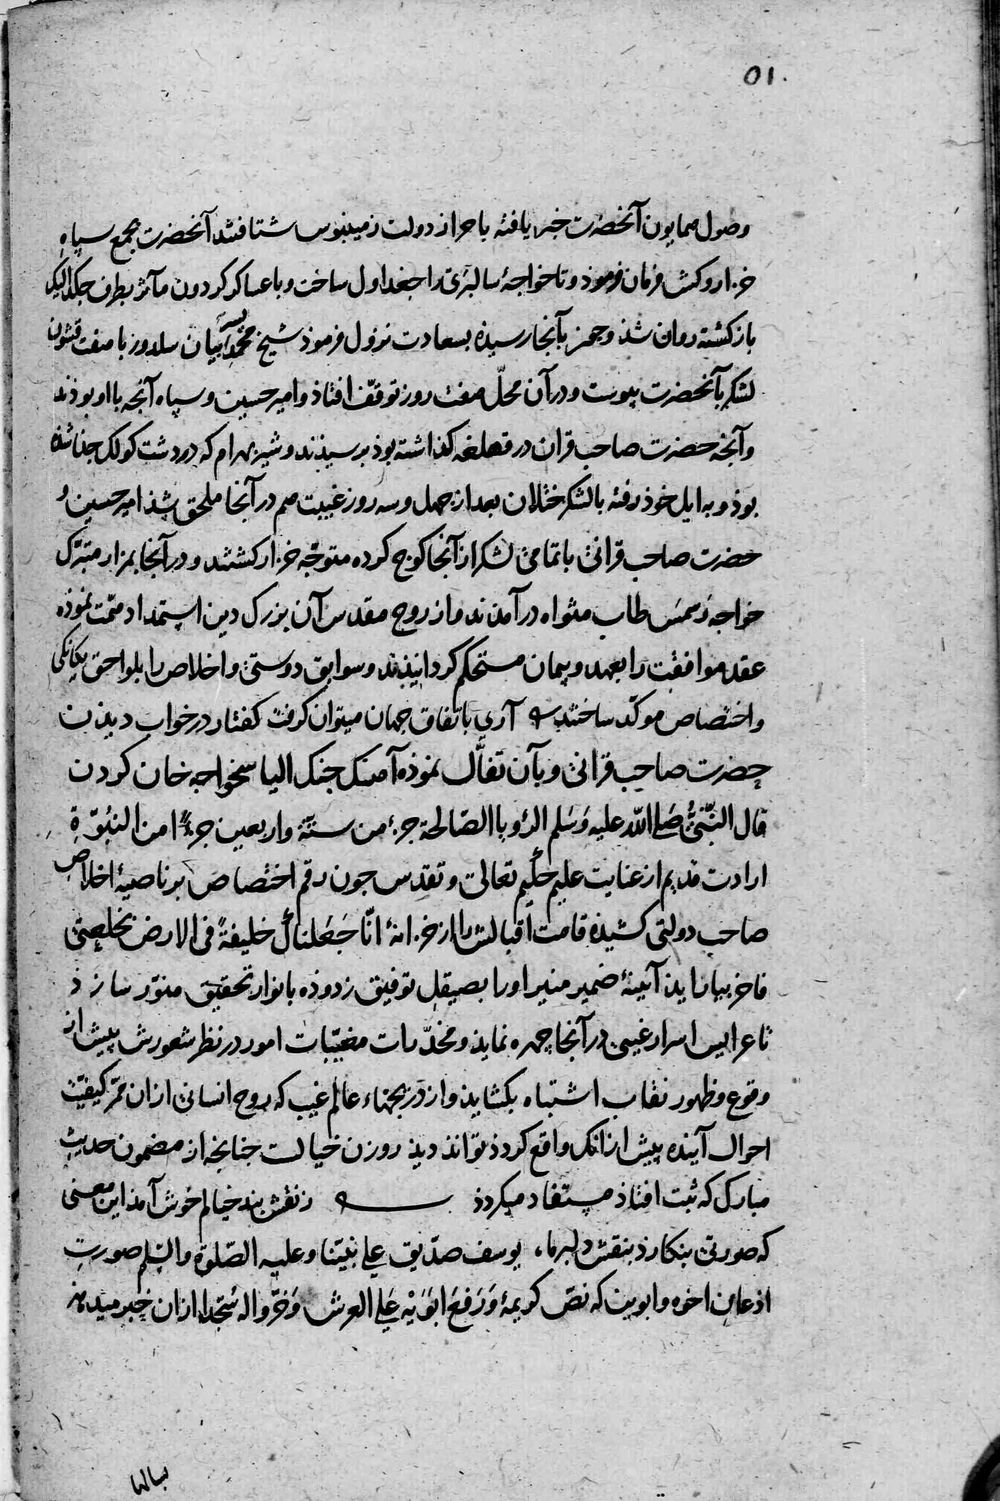 ٥١
وصول همایون آنحضرت خبر یافته باحراز دولت زمینبوس شتافتند آنحضرت بجمع سپاه
خزار و کش فرمان فرمود و تاخواجهٔ سالبری را اول ساخت و با عساکر کردون مآثر بطرف جکدالیک
بازکشته روان شذ و چون بآنجا رسیذه بسعادت نزول فرموذ شیخ محمد پسر بیان سلدوز با هفت قشون
لشکر بآنحضرت پیوست و در آن محلّ هفت روز توقّف افتاذ و امیر حسین و سپاه آنچه با او بوذند
و آنچه حضرت صاحب قران در قهلغه کذاشته بوذ برسیذند و شیر بهرام که در دشت کولک جدا شده
بوذ و به ایل خوذ رفته با لشکر ختلان بعد از چهل و سه روز غیبت هم در آنجا ملحق شذ امیر حسین و
حضرت صاحب قرانی با تمامی لشکر از آنجا کوچ کرده متوجّه خزار کشتند و در آنجا بمزار متبرّک
خواجه شمس طاب مثواه درآمدند و از روح مقدس آن بزرک دین استمداد همّت نموذه
عقد موافقت را بعهد و پیمان مستحکم کردانیذند و سوابق دوستی و اخلاص را بلواحق یکانکی
و اختصاص موکّد ساختند آری باتفاق جهان میتوان کرفت کفتار در خواب دیذن
حضرت صاحب قرانی و بآن تفأّل نموذه آهنک جنک الیاسخواجه خان کردن
قال النّبیّ صلی اللّه علیه وسَلم الرّویا الصّالحة جزء من ستّة و اربعین جزءًا من النبُوّة
ارادت قدیم از عنایت علیم حکیم تعالی و تقدس چون رقم اختصاص بر ناصیهٔ اخلاص
صاحب دولتی کشیذه قامت اقبالش را از خزانهٔ انّا جَعَلناک خلیفةً فی الارض بخلعتی
فاخر بیاراید آئینهٔ ضمیر منیر او را بصیقل توفیق زدوذه بانوار تحقیق منوّر سازذ
تا عرایس اسرار غیبی در آنجا چهره نماید و مخدّرات مغیّبات امور در نظر شعورش پیش از
وقوع و ظهور نقاب اشتباه بکشاید و از دریچهاء عالم غیب که روح انسانی ازان ممرّ کیفیّت
احوال آینده پیش از انک واقع کردذ تواند دید روزن خیالست چنانچه از مضمون حدیث
مبارک که ثبت افتاذ مستفاد میکردذ ز نقش بند خیالم خوش آمد این معنی
که صورتی بنکارذ بنقش دلبر ما، یوسف صدّیق علی نبیّنا وعلیه الصّلوة والسّلم صورت
اذعان اخوه و ابوین که نصّ کریمهٔ وَرَفَعَ ابَوَیْهِ عَلی العرش وَخرّوا له سُجّدا ازان خبر میدهذ
سالها